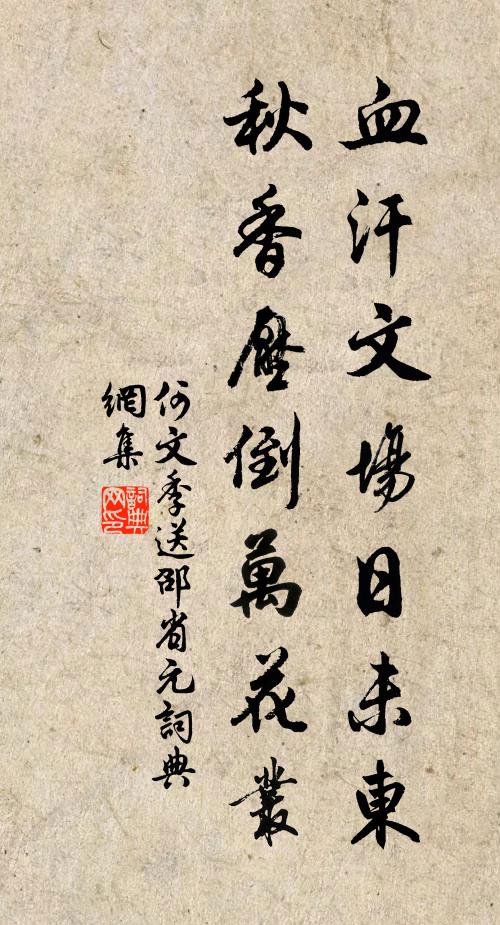 血汗文場日未東
秋香壓倒萬花叢
何文季送邵省元詞典
網集
詞典網印